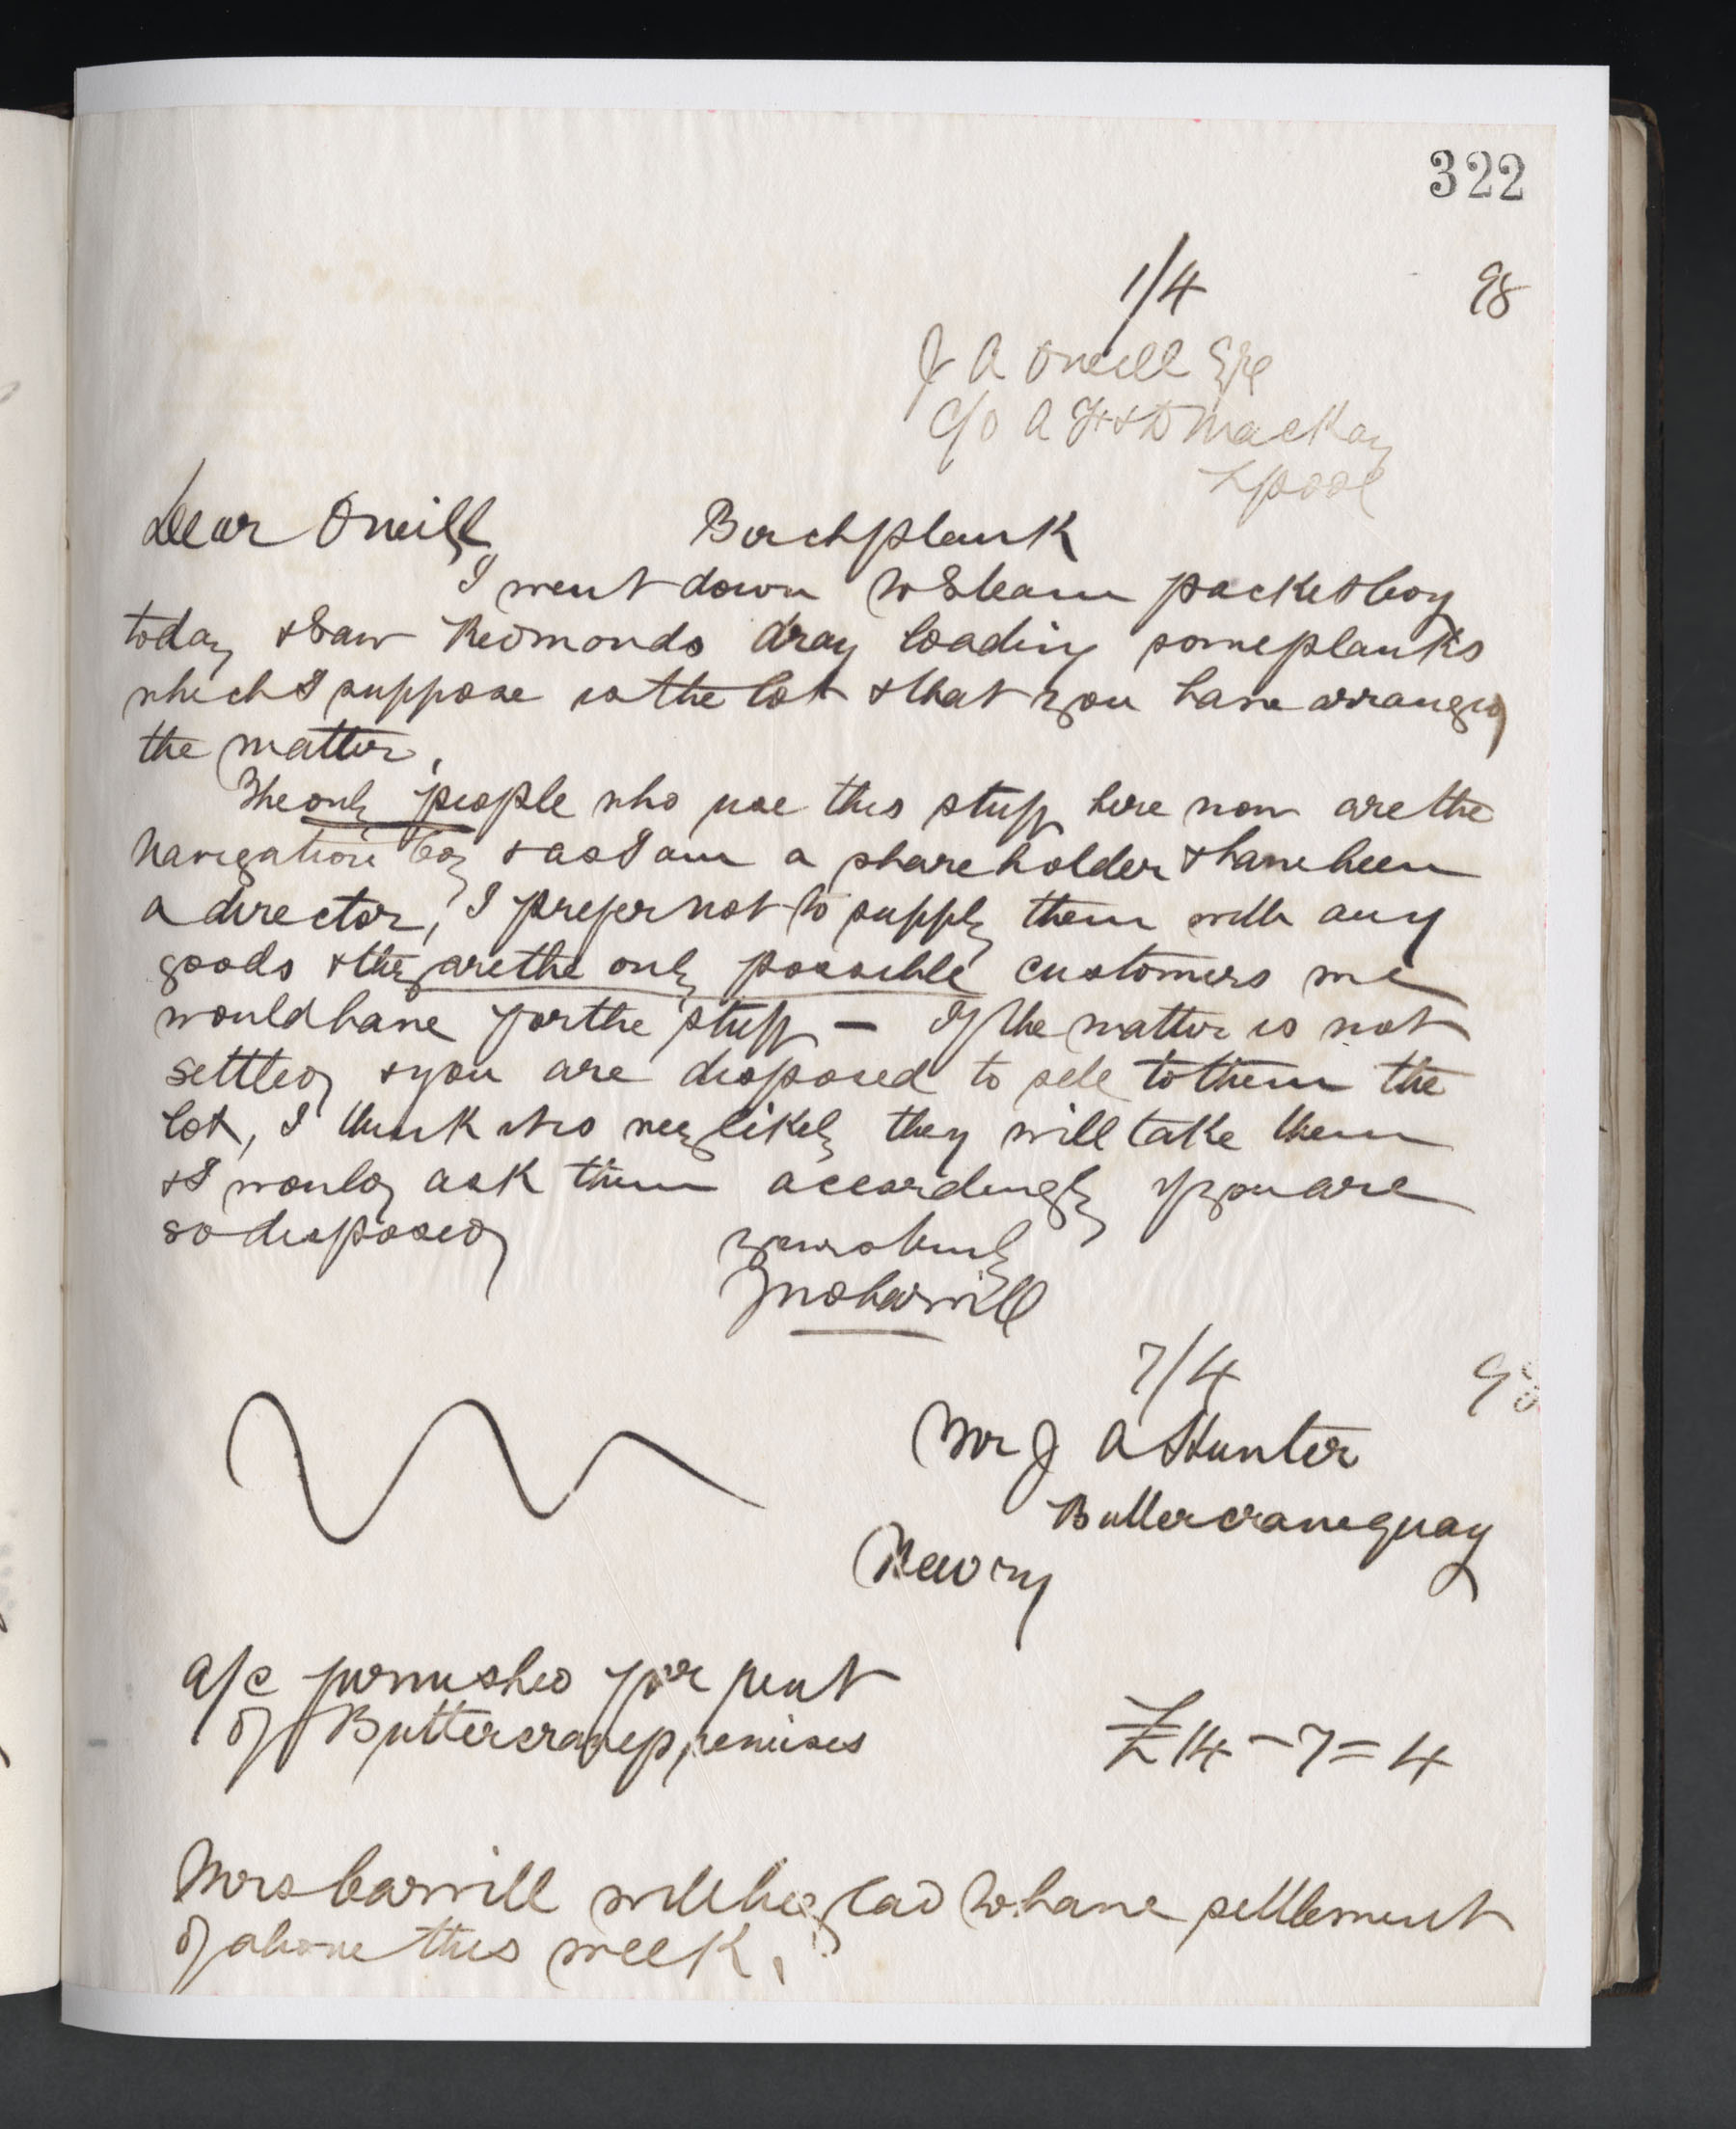 322
1/4 98
J A ONeill Esq
C/o A F & D Mackay
Lpool
Dear ONeill
Birch plank
I went down to Steam packet Coy
today & saw Redmonds dray loading some planks
which I suppose is the lot & that you have arranged
the matter.
The only people who use this stuff here now are the
Navigation Coy & as I am a shareholder & have been
a director, I prefer not to supply them with any
goods & they are the only possible customers we
would have for the stuff — If the matter is not
settled & you are disposed to sell to them the
lot, I think it is very likely they will take them
& I would ask them accordingly if you are
so disposed
Yours truly
Jno Carvill
7/4 98
Mr J A Hunter
Buttercrane quay
Newry
a/c furnished for rent
of Buttercrane premises £14-7=4
Mrs Carvill will be glad to have settlement
of above this week.